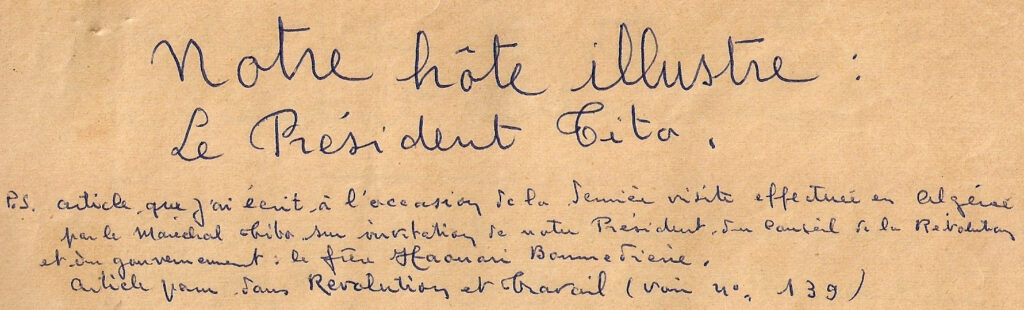 Notre hôte illustre :
Le Président Tito.
P.S. article que j'ai écrit à l'occasion de la dernière visite effectuée en Algérie
par le Maréchal Tito sur invitation de notre Président du Conseil de la Révolution
et du gouvernement : le frère Haouari Boumediène.
Article paru dans Révolution et Travail (voir n°. 139)